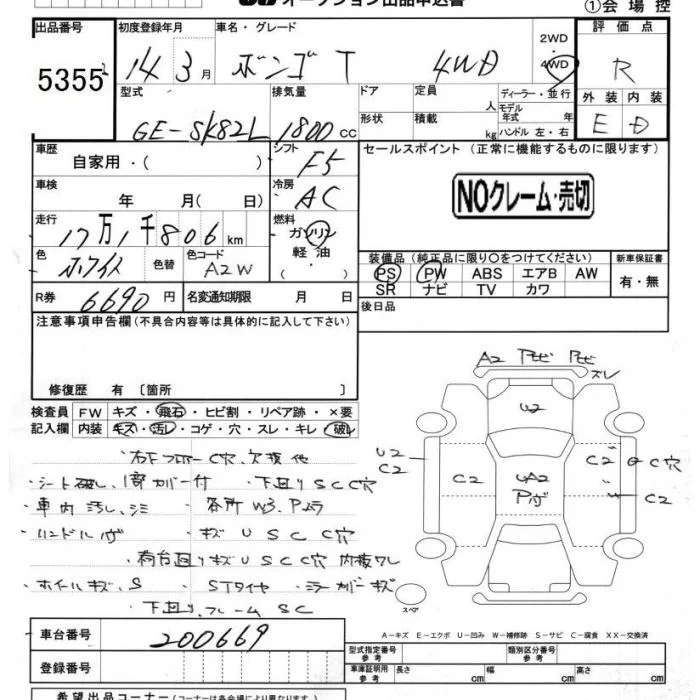 オークション出品申込書
①会場控
出品番号 初度登録年月 車名・グレード 2WD 評価点
5355 14年 3月 ボンゴ T 4WD 4WD R
型式 排気量 ドア 定員 人 ディーラー・並行 外装 内装
GE-SK82L 1800cc 形状 積載 kg モデル年式 年 ハンドル 左・右 E D
車歴 自家用・( ) シフト F5 セールスポイント (正常に機能するものに限ります)
車検 年 月(日) 冷房 AC NOクレーム・売切
走行 17万1千806km 燃料 ガソリン
軽油
( ・ )
色 ホワイト 色替 色コード A2W 装備品 (純正品に限り○をつけてください) 新車保証書
PS PW ABS エアB AW 有・無
SR ナビ TV カワ
R券 6690円 名変通知期限 月 日 後日品
注意事項申告欄(不具合内容等は具体的に記入して下さい)
修復歴 有 [箇所 ]
検査員 FW キズ・飛石・ヒビ割・リペア跡・×要
記入欄 内装 キズ・汚レ・コゲ・穴・スレ・キレ・破レ
・右下フロアーC穴、欠損他
・シート破レ、1部カバー付 ・下回りSCC穴
・車内汚レ、シミ ・各所W3、Pムラ
・ハンドルスレ ・キズUSCC穴
・荷台回りキズUSCC穴
・ホイールキズ、S ・STタイヤ ・ミラーカバーキズ
・下回り、フレームSC
A2
U2
U2
C2
C2
UA2
C2
C穴
C2
スペア
A-キズ E-エクボ U-凹み W-補修跡 S-サビ C-腐食 XX-交換済
車台番号 200669
登録番号
型式指定番号 参考 類別区分番号 参考
車庫証明用 参考 長さ cm 幅 cm 高さ cm
希望出品コーナー(コーナーは各会場により異なります)